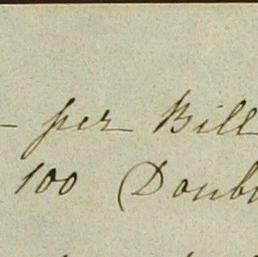 - per Bill
100 (Doubl